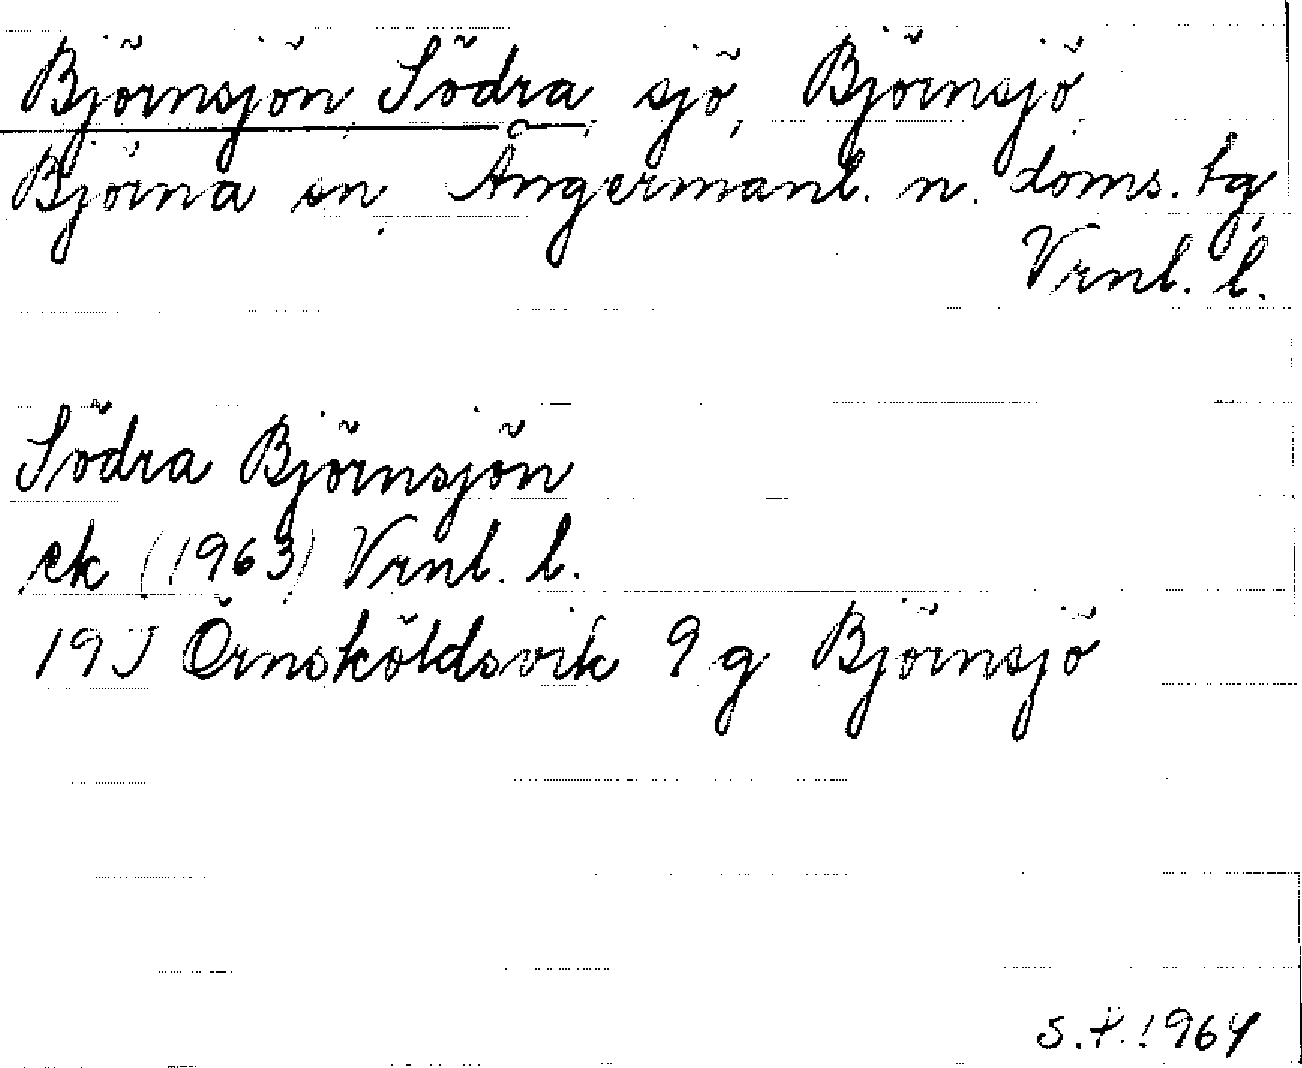 Björnsjön, Södra sjö, Björnsjö,
Björna sn, Ångermanl. n. doms. tg,
Vrnl. l.
Södra Björnsjön
ek (1963) Vrnl. l.
19J Örnsköldsvik 9 g Björnsjö
1964